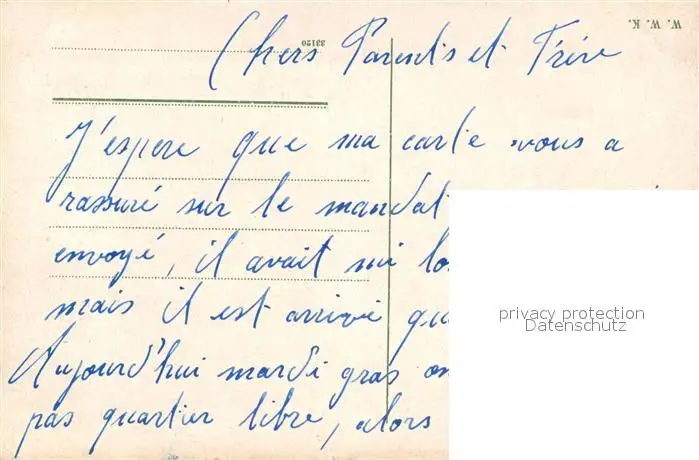 Chers Parents et Frère
J'espere que ma carte vous a
rassuré sur le mandat
envoyé, il avait mi
mais il est arrivé
Aujourd'hui mardi gras on
pas quartier libre, alors
W. W. K.
33120
privacy protection
Datenschutz